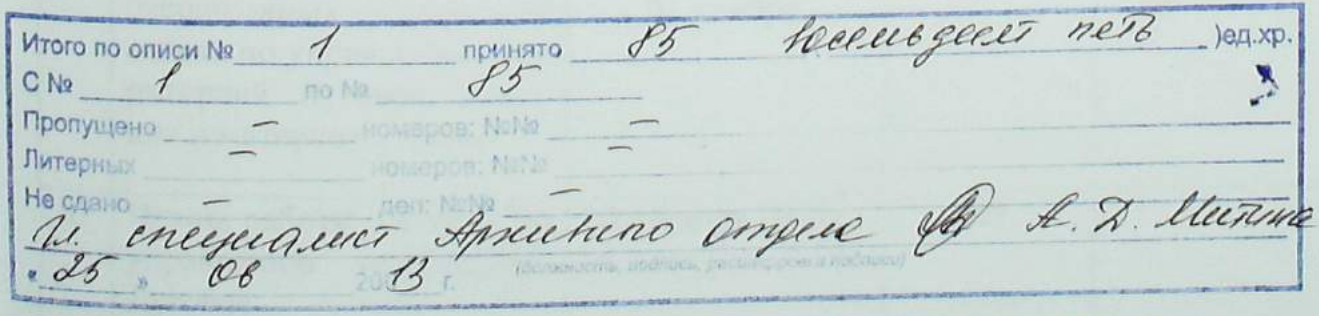 Итого по описи № 1 принято 85 восемьдесят пять ) ед.хр.
С № 1 по № 85
Пропущено – номеров: №№ –
Литерных – номеров: №№ –
Не сдано – дел: №№ –
Гл. специалист Архивного отдела А. Д. Митина
(должность, подпись, расшифровка подписи)
« 25 » 06 200 13 г.